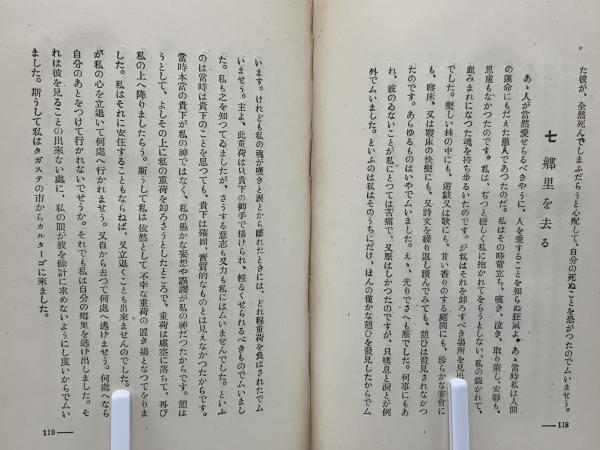 た彼が、全然死んでしまふだらうと心配して、自分の死ぬことを恐がつたのでムいませう。
七 郷里を去る
あゝ人が當然愛せらるべきやうに、人を愛することを知らぬ狂氣よ。あゝ當時私は人間
の運命にもだえた愚人であつたのだ。私はその時苛立ち、嘆き、泣き、取り紊し、安靜も、
思慮もなかつたのです。私は、ぢつと軽しく私に抱かれてをらうとしない、私の裂かれて、
血みまれになつた魂を持ち歩るいたのです。が私はそれを卸ろすべき場所を見
でした。樂しい林の中にも、遊戯又は歌にも、甘い香りのする庭園にも、珍らかな宴會に
も、寢床、又は寢床の快樂にも、又詩文を繰り返し讀んでみても、憩ひは發見されなかつ
たのです。あらゆるものはいやでムいました。えゝ、光りでさへも厭でした。何事にもあ
れ、彼のゐないことが私にとつては苦痛で、又厭はしかつたのですが、只嘆息と涙とが例
外でムいました。といふのは私はそのうちにだけ、ほんの僅かな憩ひを發見したからでム
118
います。けれども私の魂が嘆きと涙とから離れたときには、どれ程重荷を負はされたでム
いませう。主よ、此重荷は只貴下の御手で揚げられ、輕るくせられるべきものでムいまし
た。私も之を知つてゐましたが、さうする意志も又力も私にはムいませんでした。といふ
のは當時は貴下のことを思つても、貴下は確固、實質的なものとは見えなかつたからです。
當時本當の貴下が私の神ではなく、私の愚かな妄想や誤謬が私の神だつたからです。憩は
うとして、よしその上に私の重荷を卸ろさうとしたところで、重荷は虛空に落ちて、再び
私の上へ降りましたらう。斯うして私は依然として不幸な重荷の置き場となつてをりま
した。私はそれに安住することもならねば、又立退くことも出來ませんでした。
が私の心を立退いて何處へ行かれませう。又自から去つて何處へ逃げませう。何處へなら
自分のあとをつけて行かれないでせうか。それでも私は自分の鄕里を逃げ出しました。そ
れは彼を見ることの出來ない處に、私の眼が彼を餘計に求めないようにし度いからでムい
ました。斯うして私はタガステの市からカルターゴに來ました。
119